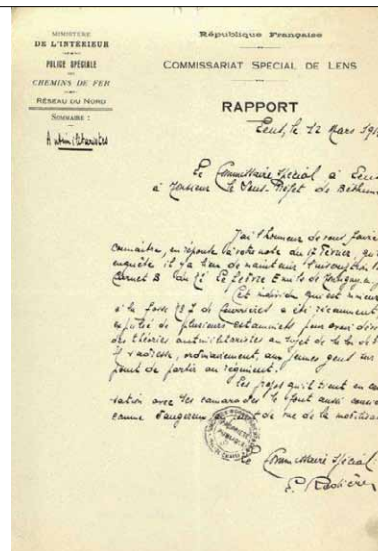 MINISTÈRE
DE L'INTÉRIEUR
POLICE SPÉCIALE
DES
CHEMINS DE FER
RÉSEAU DU NORD
SOMMAIRE :
Antimilitaristes
République Française
COMMISSARIAT SPÉCIAL DE LENS
RAPPORT
Lens, le 12 Mars 191
Le Commissaire Spécial à Lens
à Monsieur le Sous-Préfet de Béthune
J'ai l'honneur de vous faire
connaître, en réponse à votre note du 17 Février, qu'
enquête il y a lieu de maintenir l'inscription
Carnet B du Lefebvre Emile de Montigny
Cet individu qui est mineur
à la fosse de Courrières a été récemment
expulsé de plusieurs estaminets pour avoir
des théories antimilitaristes au sujet de la loi de
Il s'adresse, ordinairement, aux jeunes gens sur
point de partir au régiment.
Les propos qu'il tient en
sation avec ses camarades le font aussi
comme dangereux au point de vue de la
Le Commissaire Spécial